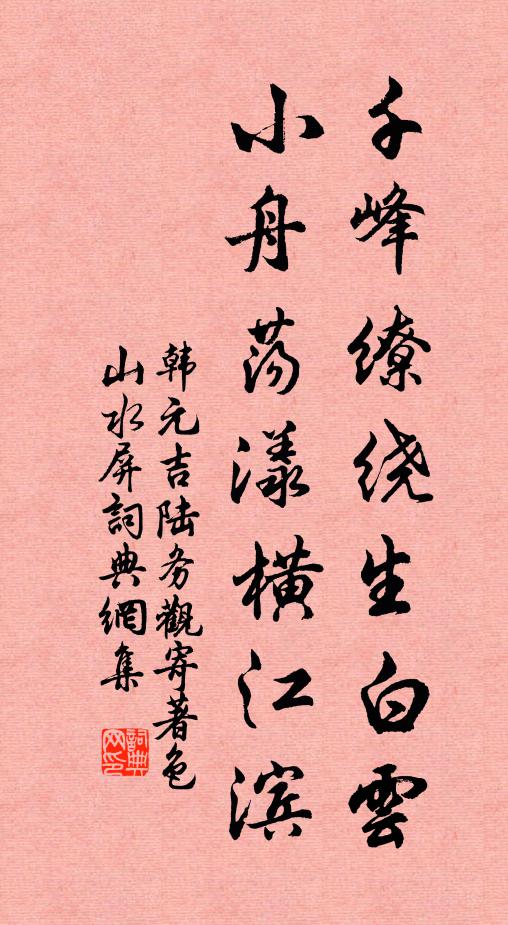 千峰缭绕生白雲
小舟荡漾横江滨
韩元吉陆务觀寄著色
山水屏詞典網集
詞典网印